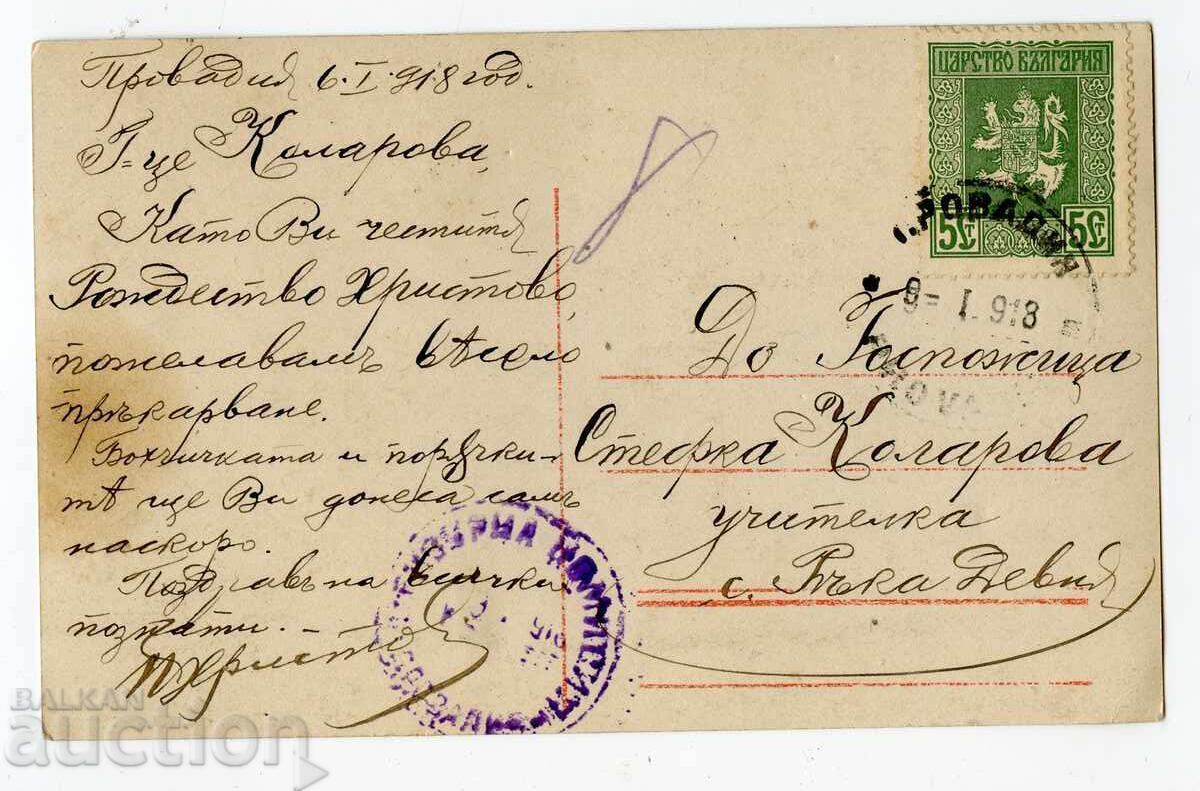 Провадия 6·I·918 год.
Г-це Коларова,
Като Ви честитя
Рождество Христово,
пожелавамъ вѣсело
прѣкарване.
Бохчичката и порѫчки-
тѣ ще Ви донеса самъ
наскоро.
Поздравъ на всички
познати. –
ЦАРСТВО БЪЛГАРИЯ
5 СТ 5 СТ
9 - I. 918
До Госпожица
Стефка Коларова
учителка
с. Рѣка Девня
BALKAN
auction